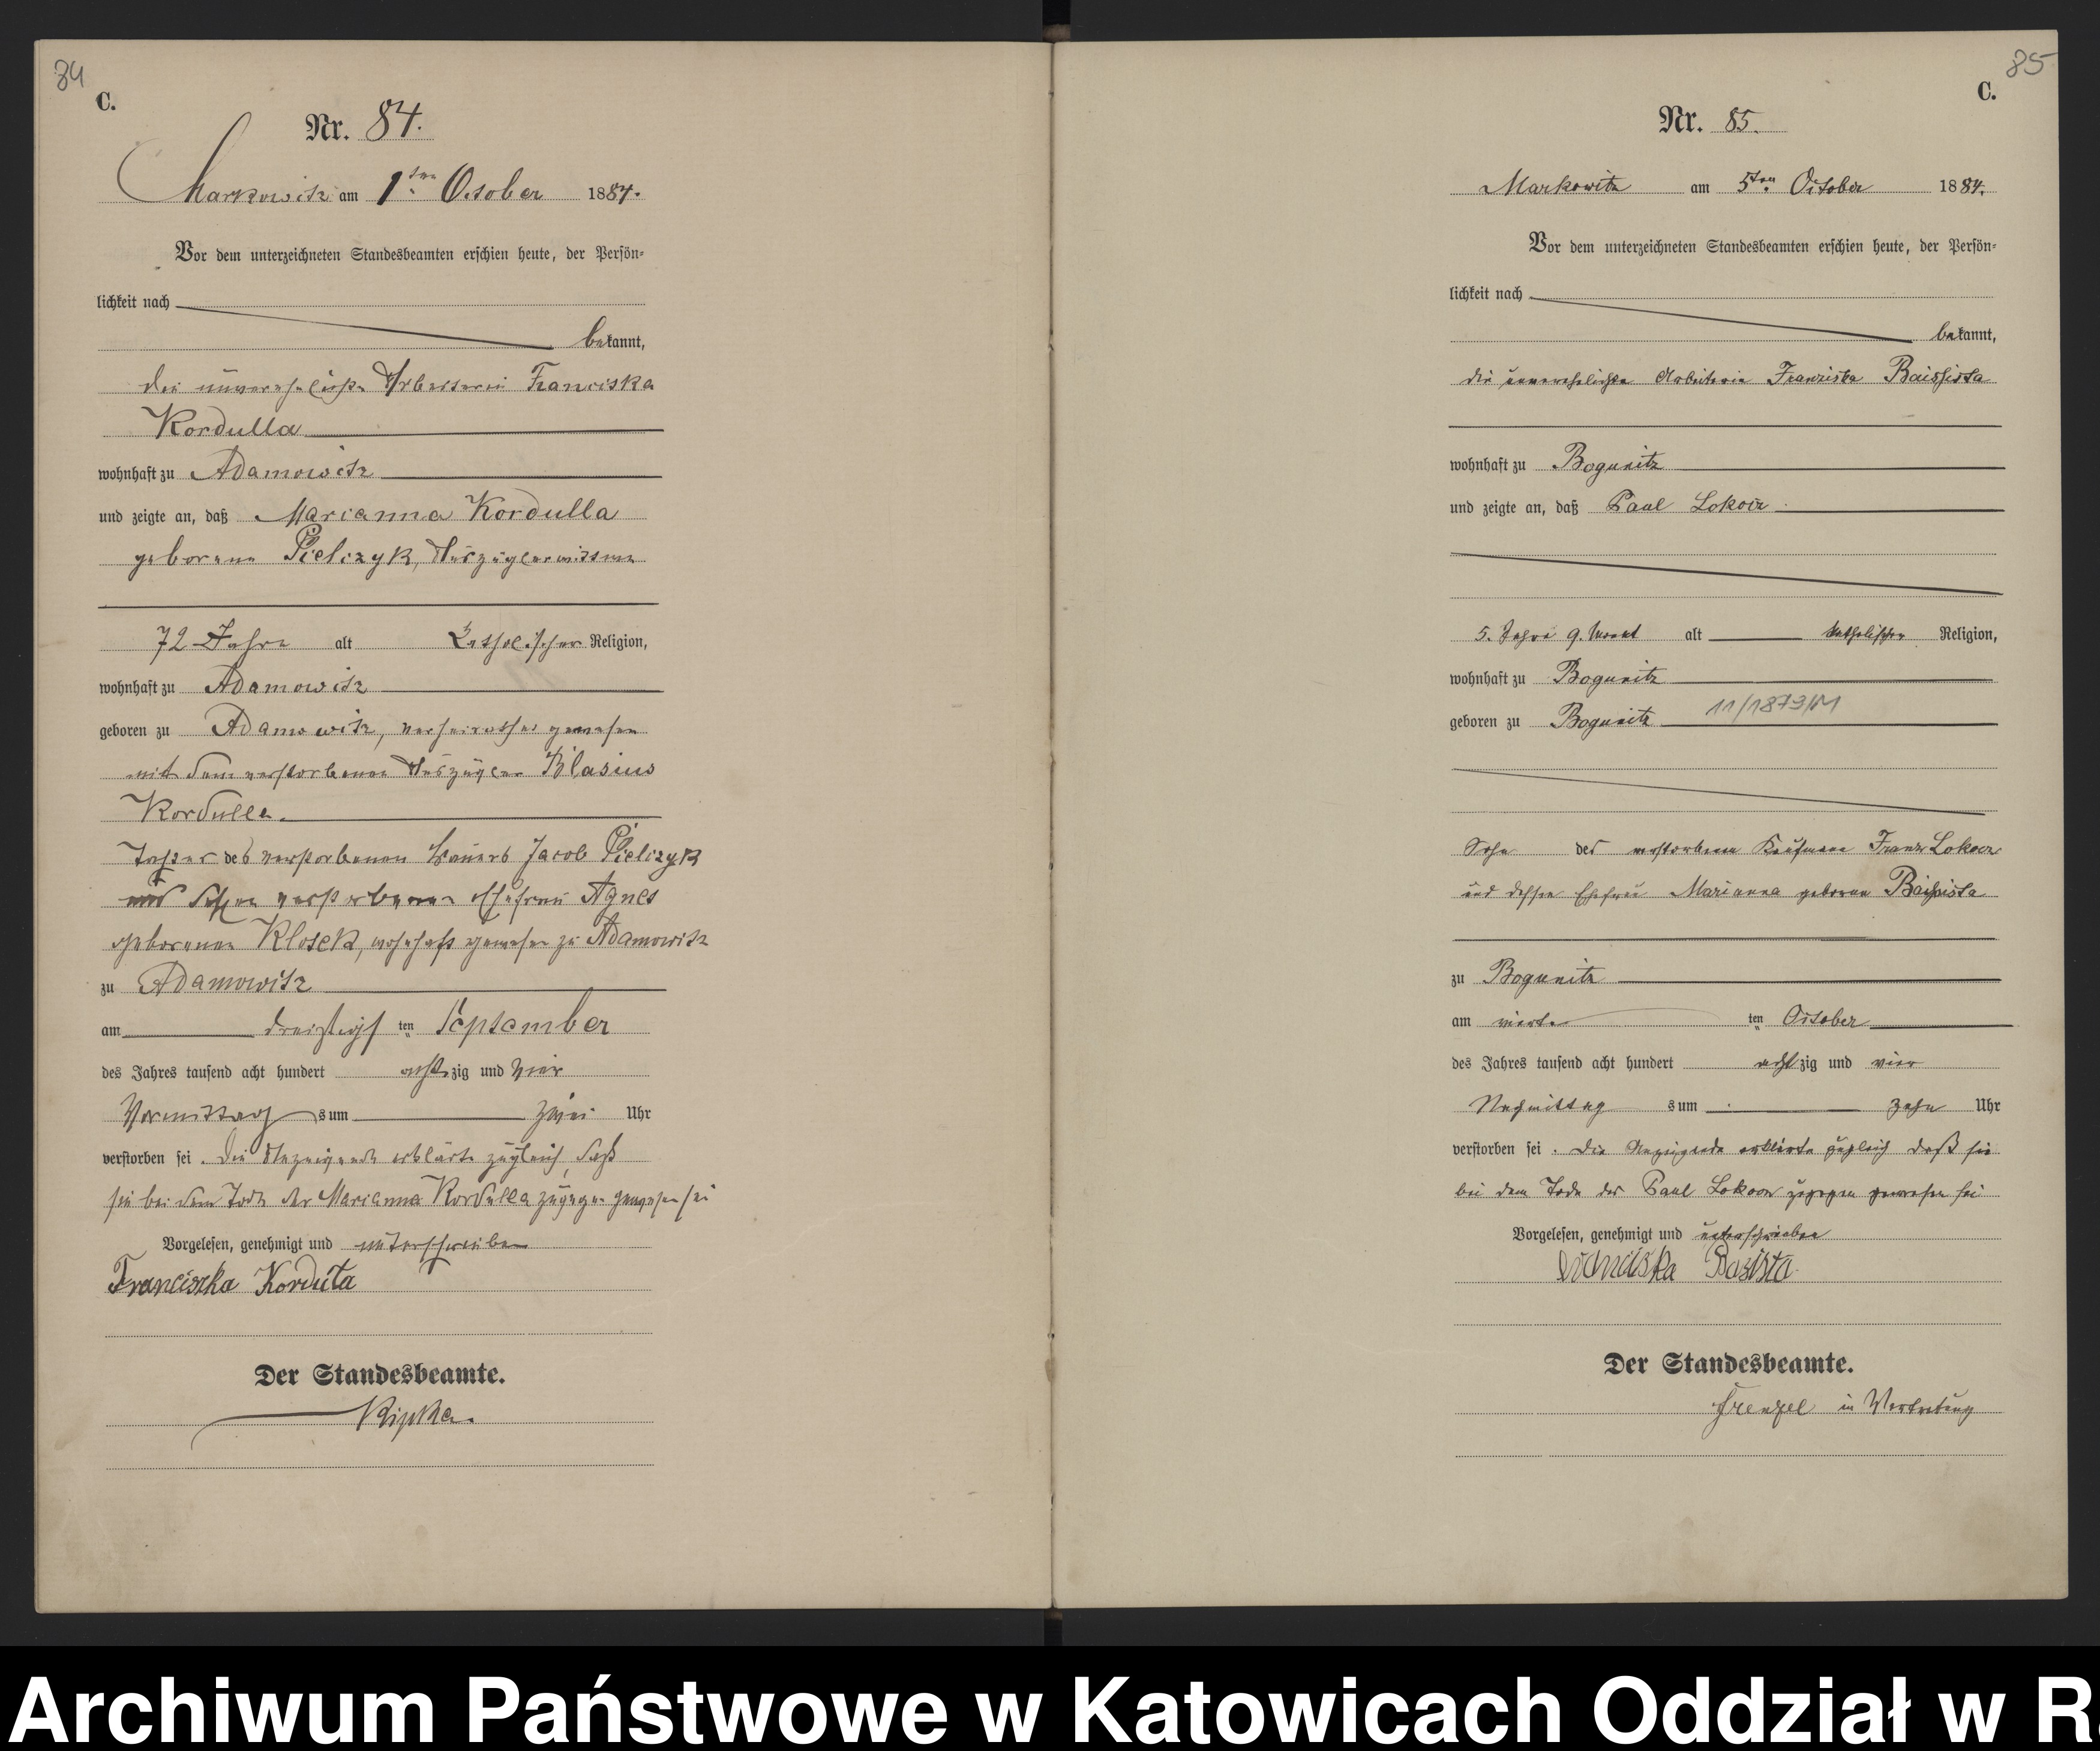 84
C.
Nr. 84.
Markowitz am 1ten October 1884.
Vor dem unterzeichneten Standesbeamten erschien heute, der Persön-
lichkeit nach
bekannt,
die unverehelichte Arbeiterin Franciska
Kordulla
wohnhaft zu Adamowitz
und zeigte an, daß Marianna Kordulla
geborene Pielczyk, Auszüglerwittwe
72 Jahre alt katholischer Religion,
wohnhaft zu Adamowitz
geboren zu Adamowitz, verheirathet gewesen
mit dem verstorbenen Auszügler Blasius
Kordulla.
Tochter des verstorbenen Bauers Jacob Pielczyk
und dessen verstorbenen Ehefrau Agnes
geborenen Klosek, wohnhaft gewesen zu Adamowitz
zu Adamowitz
am dreizigst ten September
des Jahres tausend acht hundert achtzig und vier
Vormittags um zwei Uhr
verstorben sei. Die Anzeigende erklärte zugleich, daß
sie bei dem Tode der Marianna Kordulla zugegen gewesen sei
Vorgelesen, genehmigt und unterschrieben
Franciszka Korduła
Der Standesbeamte.
Kipka.
85
C.
Nr. 85.
Markowitz am 5ten October 1884.
Vor dem unterzeichneten Standesbeamten erschien heute, der Persön-
lichkeit nach
bekannt,
die unverehelichte Arbeiterin Franziska
wohnhaft zu Bogunitz
und zeigte an, daß Paul Lokocz
5. Jahre 9. Monat alt katholischer Religion,
wohnhaft zu Bogunitz
11/1879/M
geboren zu Bogunitz
Sohn des verstorbenen Kaufmann Franz Lokocz
und dessen Ehefrau Marianna geborene
zu Bogunitz
am vierten ten October
des Jahres tausend acht hundert achtzig und vier
Nachmittags um zehn Uhr
verstorben sei. Die Anzeigende erklärte zugleich daß sie
bei dem Tode des Paul Lokocz zugegen gewesen sei
Vorgelesen, genehmigt und unterschrieben
Basista
Der Standesbeamte.
Frenzel in Vertretung
Archiwum Państwowe w Katowicach Oddział w R